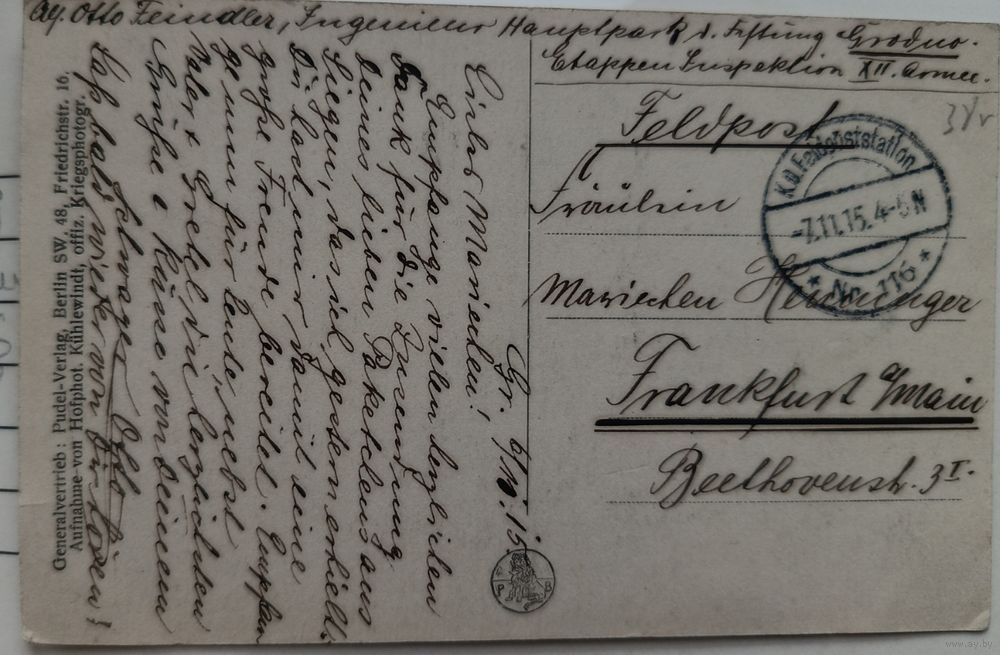 Otto Feindler, Ingenieur Hauptpark d. Festung Grodno.
Etappen Inspektion XII. Armee.
Feldpost
Fräulein
Mariechen Henninger
Frankfurt a/Main
Beethovenstr. 3 I.
K.D. Feldpoststation
-7.11.15. 4-5 N
* No. 116 *
Gr. 6/11. 15.
Liebes Mariechen!
Empfange vielen herzlichen
Dank für die Zusendung
Deines lieben Paketchens aus
Siegen, das ich gestern erhielt.
Du hast mir damit eine
große Freude bereitet. Empfan
ge nun für heute, nebst
Vater & Gretel die herzlichsten
Grüße & Küsse von Deinem
Schwager Otto
P B
Generalvertrieb: Pudel-Verlag, Berlin SW. 48, Friedrichstr. 16,
Aufnahme von Hofphot. Kühlewindt, offiz. Kriegsphotogr.
www.ay.by